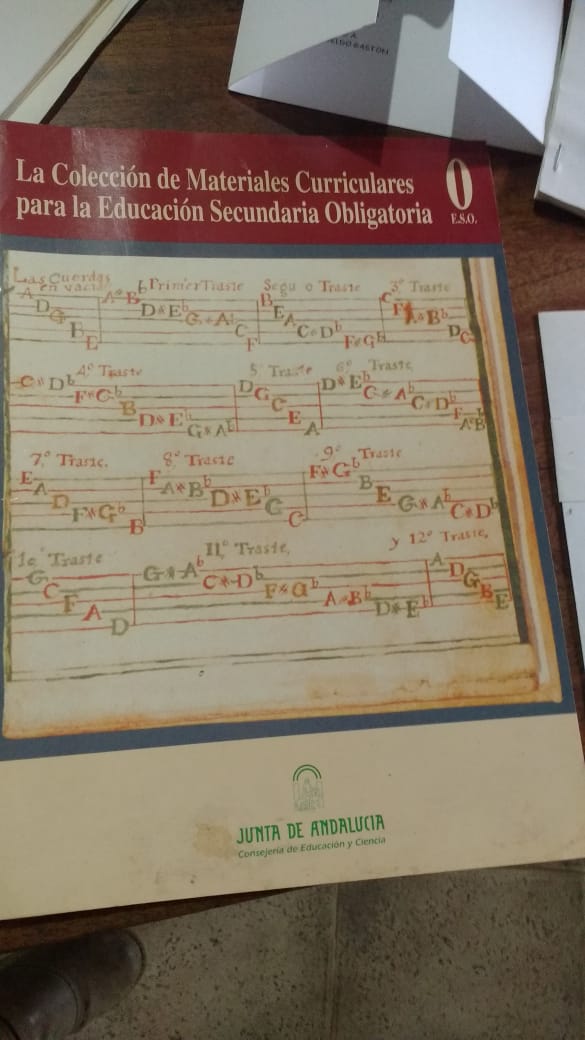 La Colección de Materiales Curriculares
para la Educación Secundaria Obligatoria
0
E.S.O.
Las Cuerdas
en vacio
A D G B E
Primer Traste
A*Bb D*Eb G*Ab C F
Segu o Traste
B E A C*Db F*Gb
3º Traste
C F A*Bb D G
4º Traste
C*Db F*Gb B D*Eb G*Ab
5º Traste
D G C E A
6º Traste
D*Eb G*Ab C*Db F
7º Traste.
E A D F*Gb B
8º Traste
F A*Bb D*Eb G C
9º Traste
F*Gb B E G*Ab C*Db
Traste
G C F A D
11º Traste,
G*Ab C*Db F*Gb A*Bb D*Eb
y 12º Traste,
A D G B E
JUNTA DE ANDALUCIA
Consejería de Educación y Ciencia